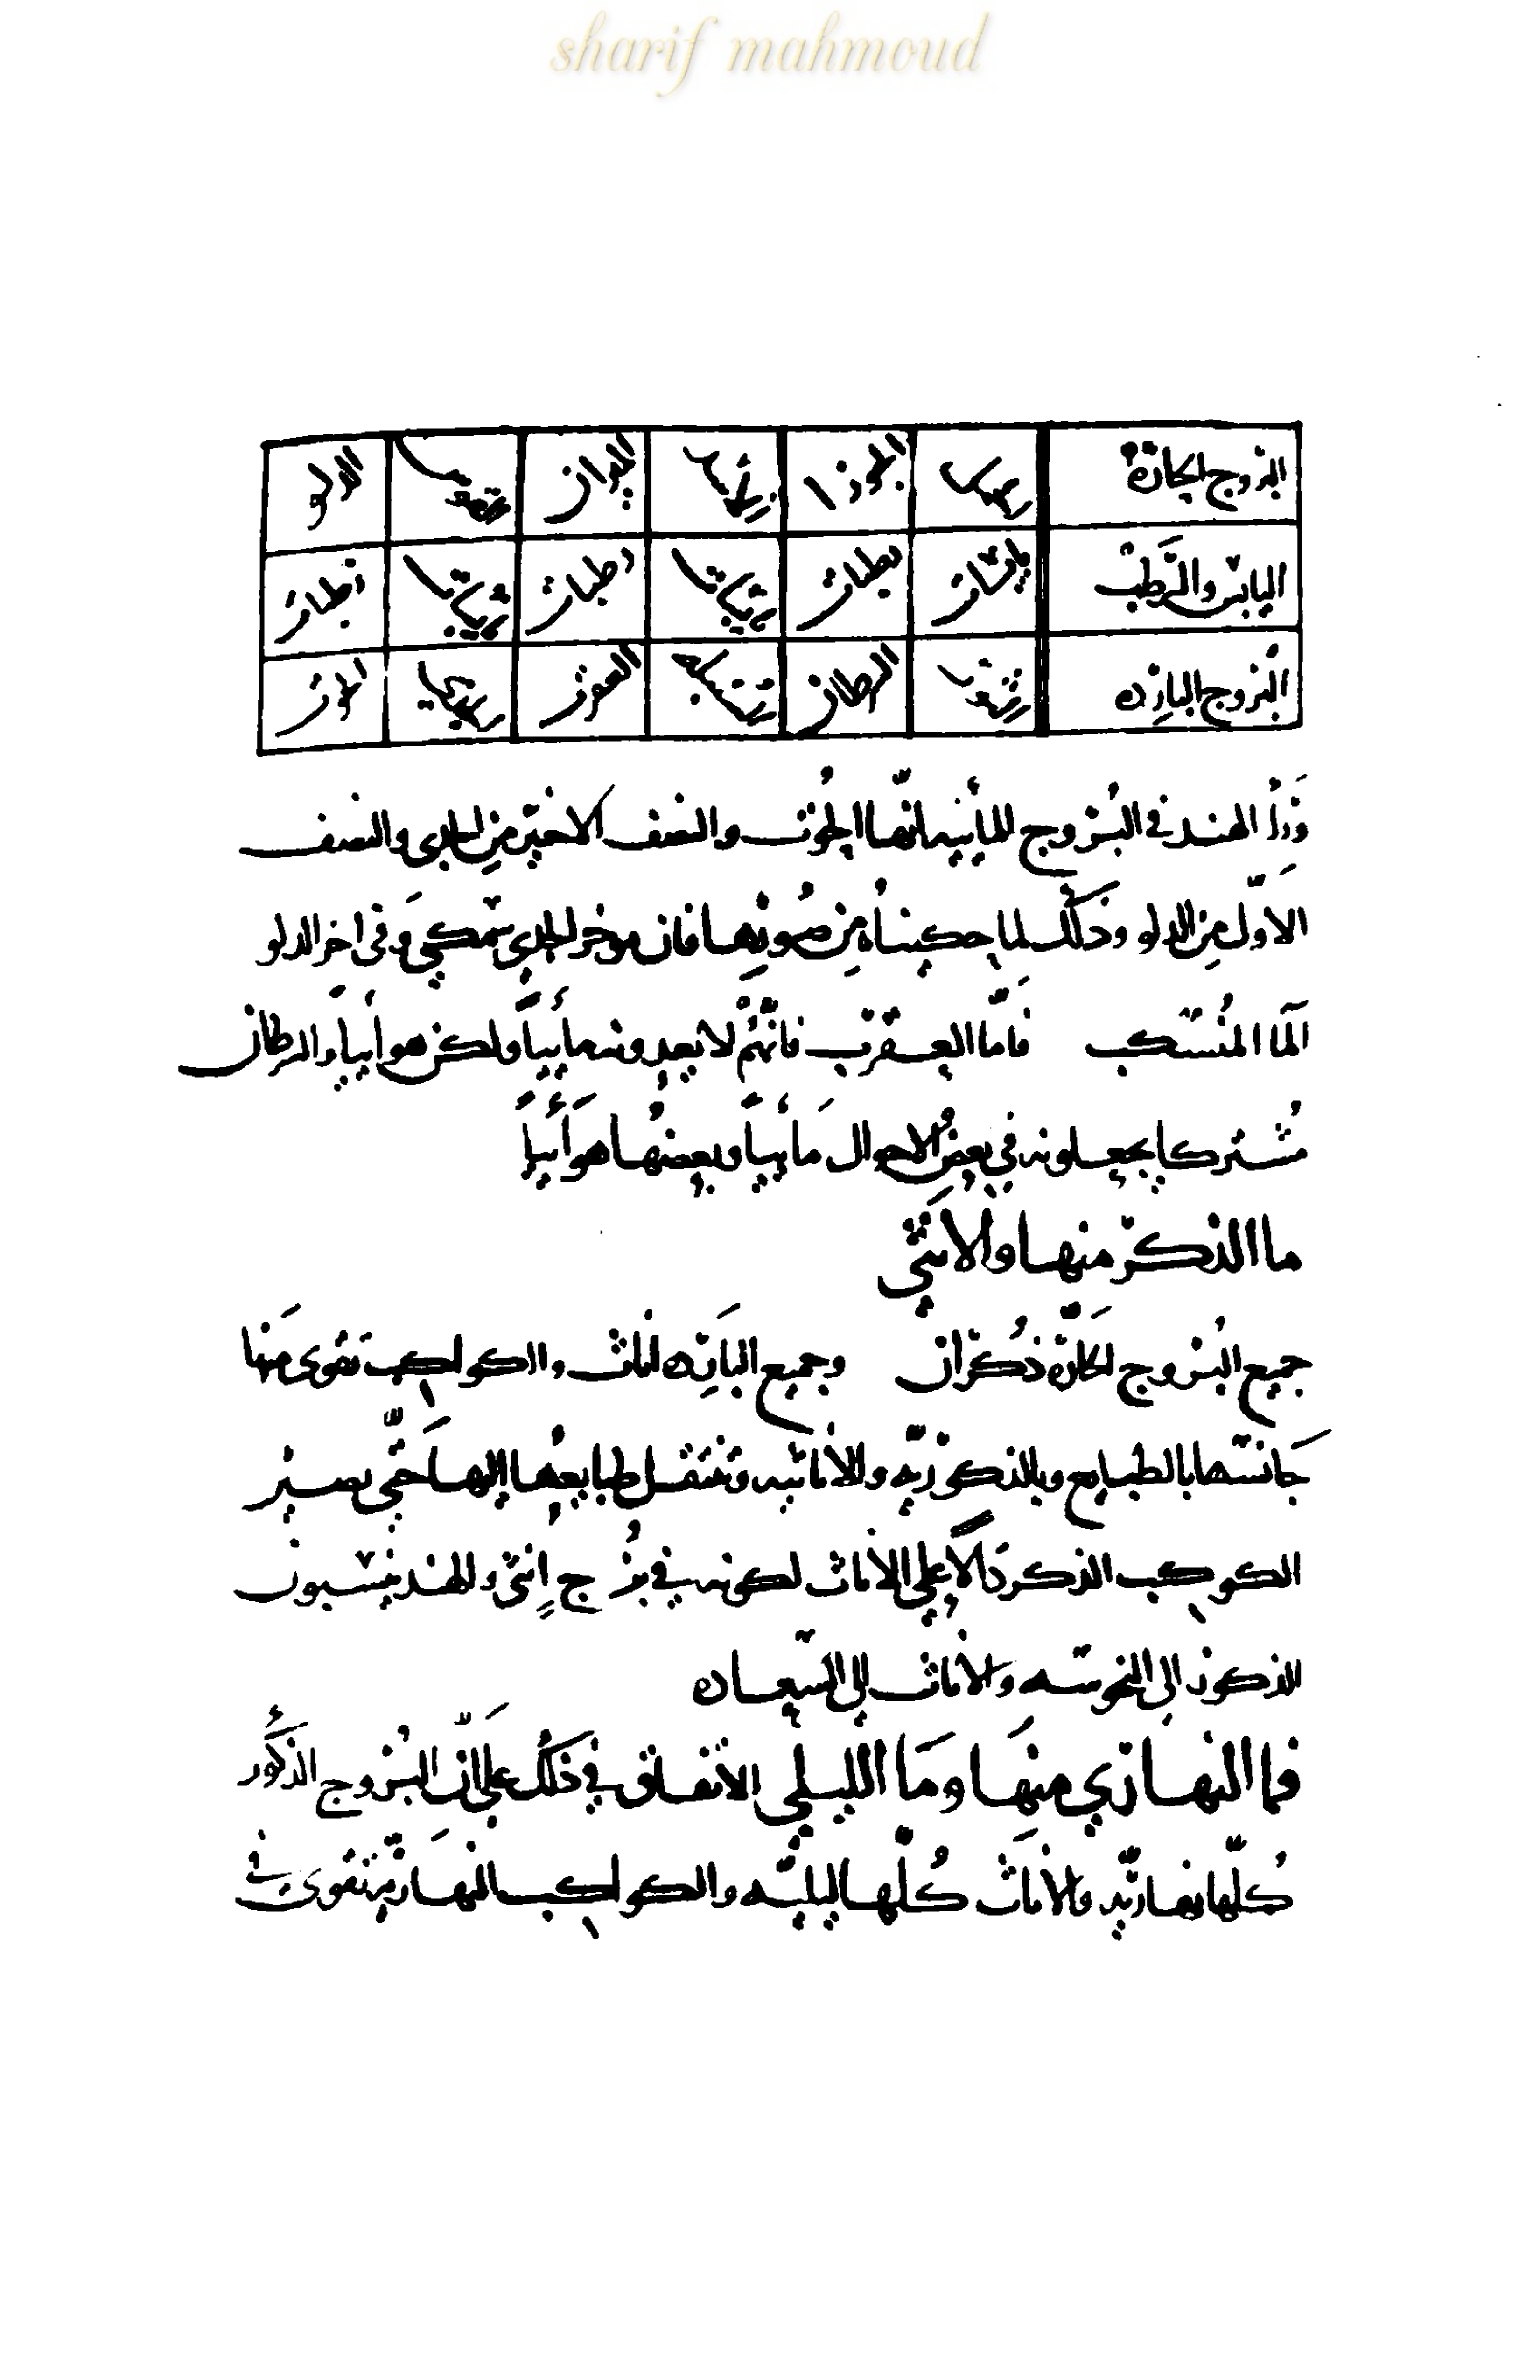 sharif mahmoud
البروج الحارة الحمل الجوزا الاسد الميزان القوس الدلو
اليابس والرطب يابسان رطبان يابسان رطبان يابسان رطبان
البروج الباردة الثور السرطان السنبلة العقرب الجدي الحوت
ورأ الهند في البروج المأئية انها الحوت والنصف الاخير من الجدى والنصف
الاول من الدلو وذلك لما حكيناه من صورتها فان مؤخر الجدى سمكي وفي اخر الدلو
الما المنسكب فاما العقرب فانهم لا يعدونه مأئيا ولكن هوأئيا والسرطان
مشتركا يجعلونه في بعض الاحوال مأئيا وبعضها هوأئيا
ما الذكر منها والانثى
جميع البروج الحارة ذكران وجميع الباردة اناث والكواكب تقوى منها
جانسها بالطبايع وبالذكورية والاناثية وتنتقل طبايعها اليها حتى يصير
الكوكب الذكر دالا على الاناث لكونه في برج انثى والهند ينسبون
الذكور الى النحوسة والاناث الى السعادة
فما النهاري منها وما الليلي الاتفاق في ذلك على ان البروج الذكور
كلها نهارية والاناث كلها ليلية والكواكب النهارية تتقوى في